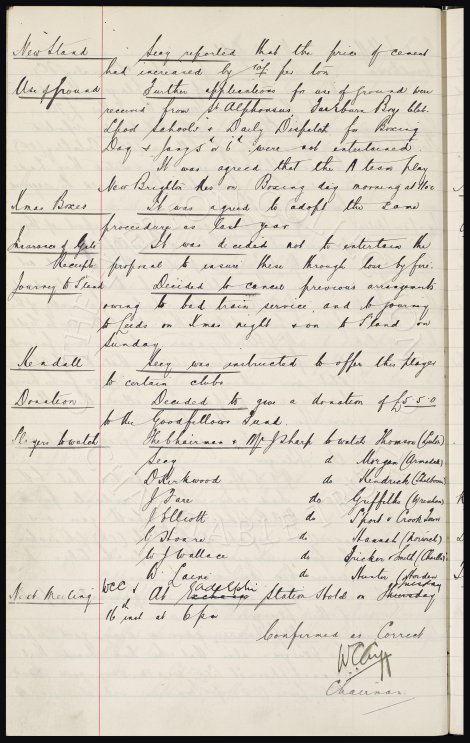 New Stand Secy reported that the price of cement
had increased by 10/- per ton
Use of Ground Further applications for use of ground were
received from St Alphonsus, Fairburn Boys Club,
Lpool Schools & Daily Dispatch for Boxing
Day & Jany 5th or 6th were not entertained.
It was agreed that the A team play
New Brighton Res on Boxing day morning at
Xmas Boxes It was agreed to adopt the same
procedure as last year
Insurance of Gate It was decided not to entertain the
Receipts proposal to insure these through loss by fire.
Journey to S'land Decided to cancel previous arrangements
owing to bad train service and to journey
to Leeds on Xmas night & on to S'land on
Sunday
Kendall Secy was instructed to offer this player
to certain clubs
Donation Decided to give a donation of £5.5.0
to the Goodfellows Fund.
Players to watch The Chairman & Mr J Sharp to watch Thomson
Secy do Morgan (Armadale)
D Kirkwood do Kendrick
J Fare do Griffiths (Wrexham)
J Elliott do Sport & Crook Town
C Hoare do Hannah (Norwich)
W J Wallace do Fricker & Smith
W Laine do Hunter
Next Meeting WCC & At Adelphi Station Hotel on Thursday Tuesday
16th inst at 6pm
Confirmed as Correct
W.C. Cuff
Chairman.